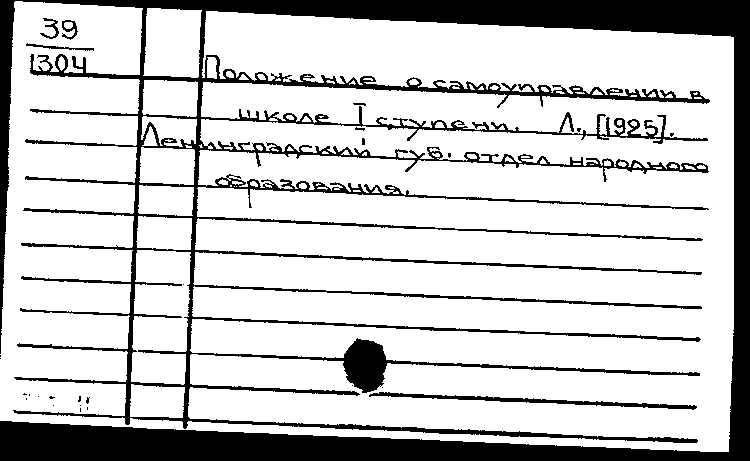 39
1304
Положение о самоуправлении в
школе I ступени. Л., [1925].
Ленинградский губ. отдел народного
образования.